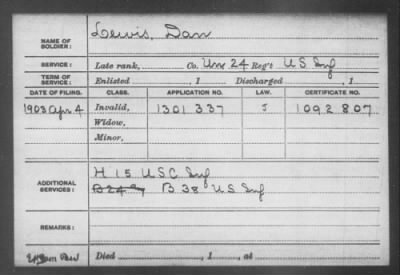 NAME OF SOLDIER: Lewis, Dan
SERVICE: Late rank, Co. Un 24 Reg't U S Inf
TERM OF SERVICE: Enlisted , 1 Discharged , 1
DATE OF FILING. CLASS. APPLICATION NO. LAW. CERTIFICATE NO.
1903 Apr 4 Invalid, 1301337 J 1092807
Widow,
Minor,
H 15 U S C Inf
ADDITIONAL SERVICES: B 24 B 38 U S Inf
REMARKS:
Died , 1 , at